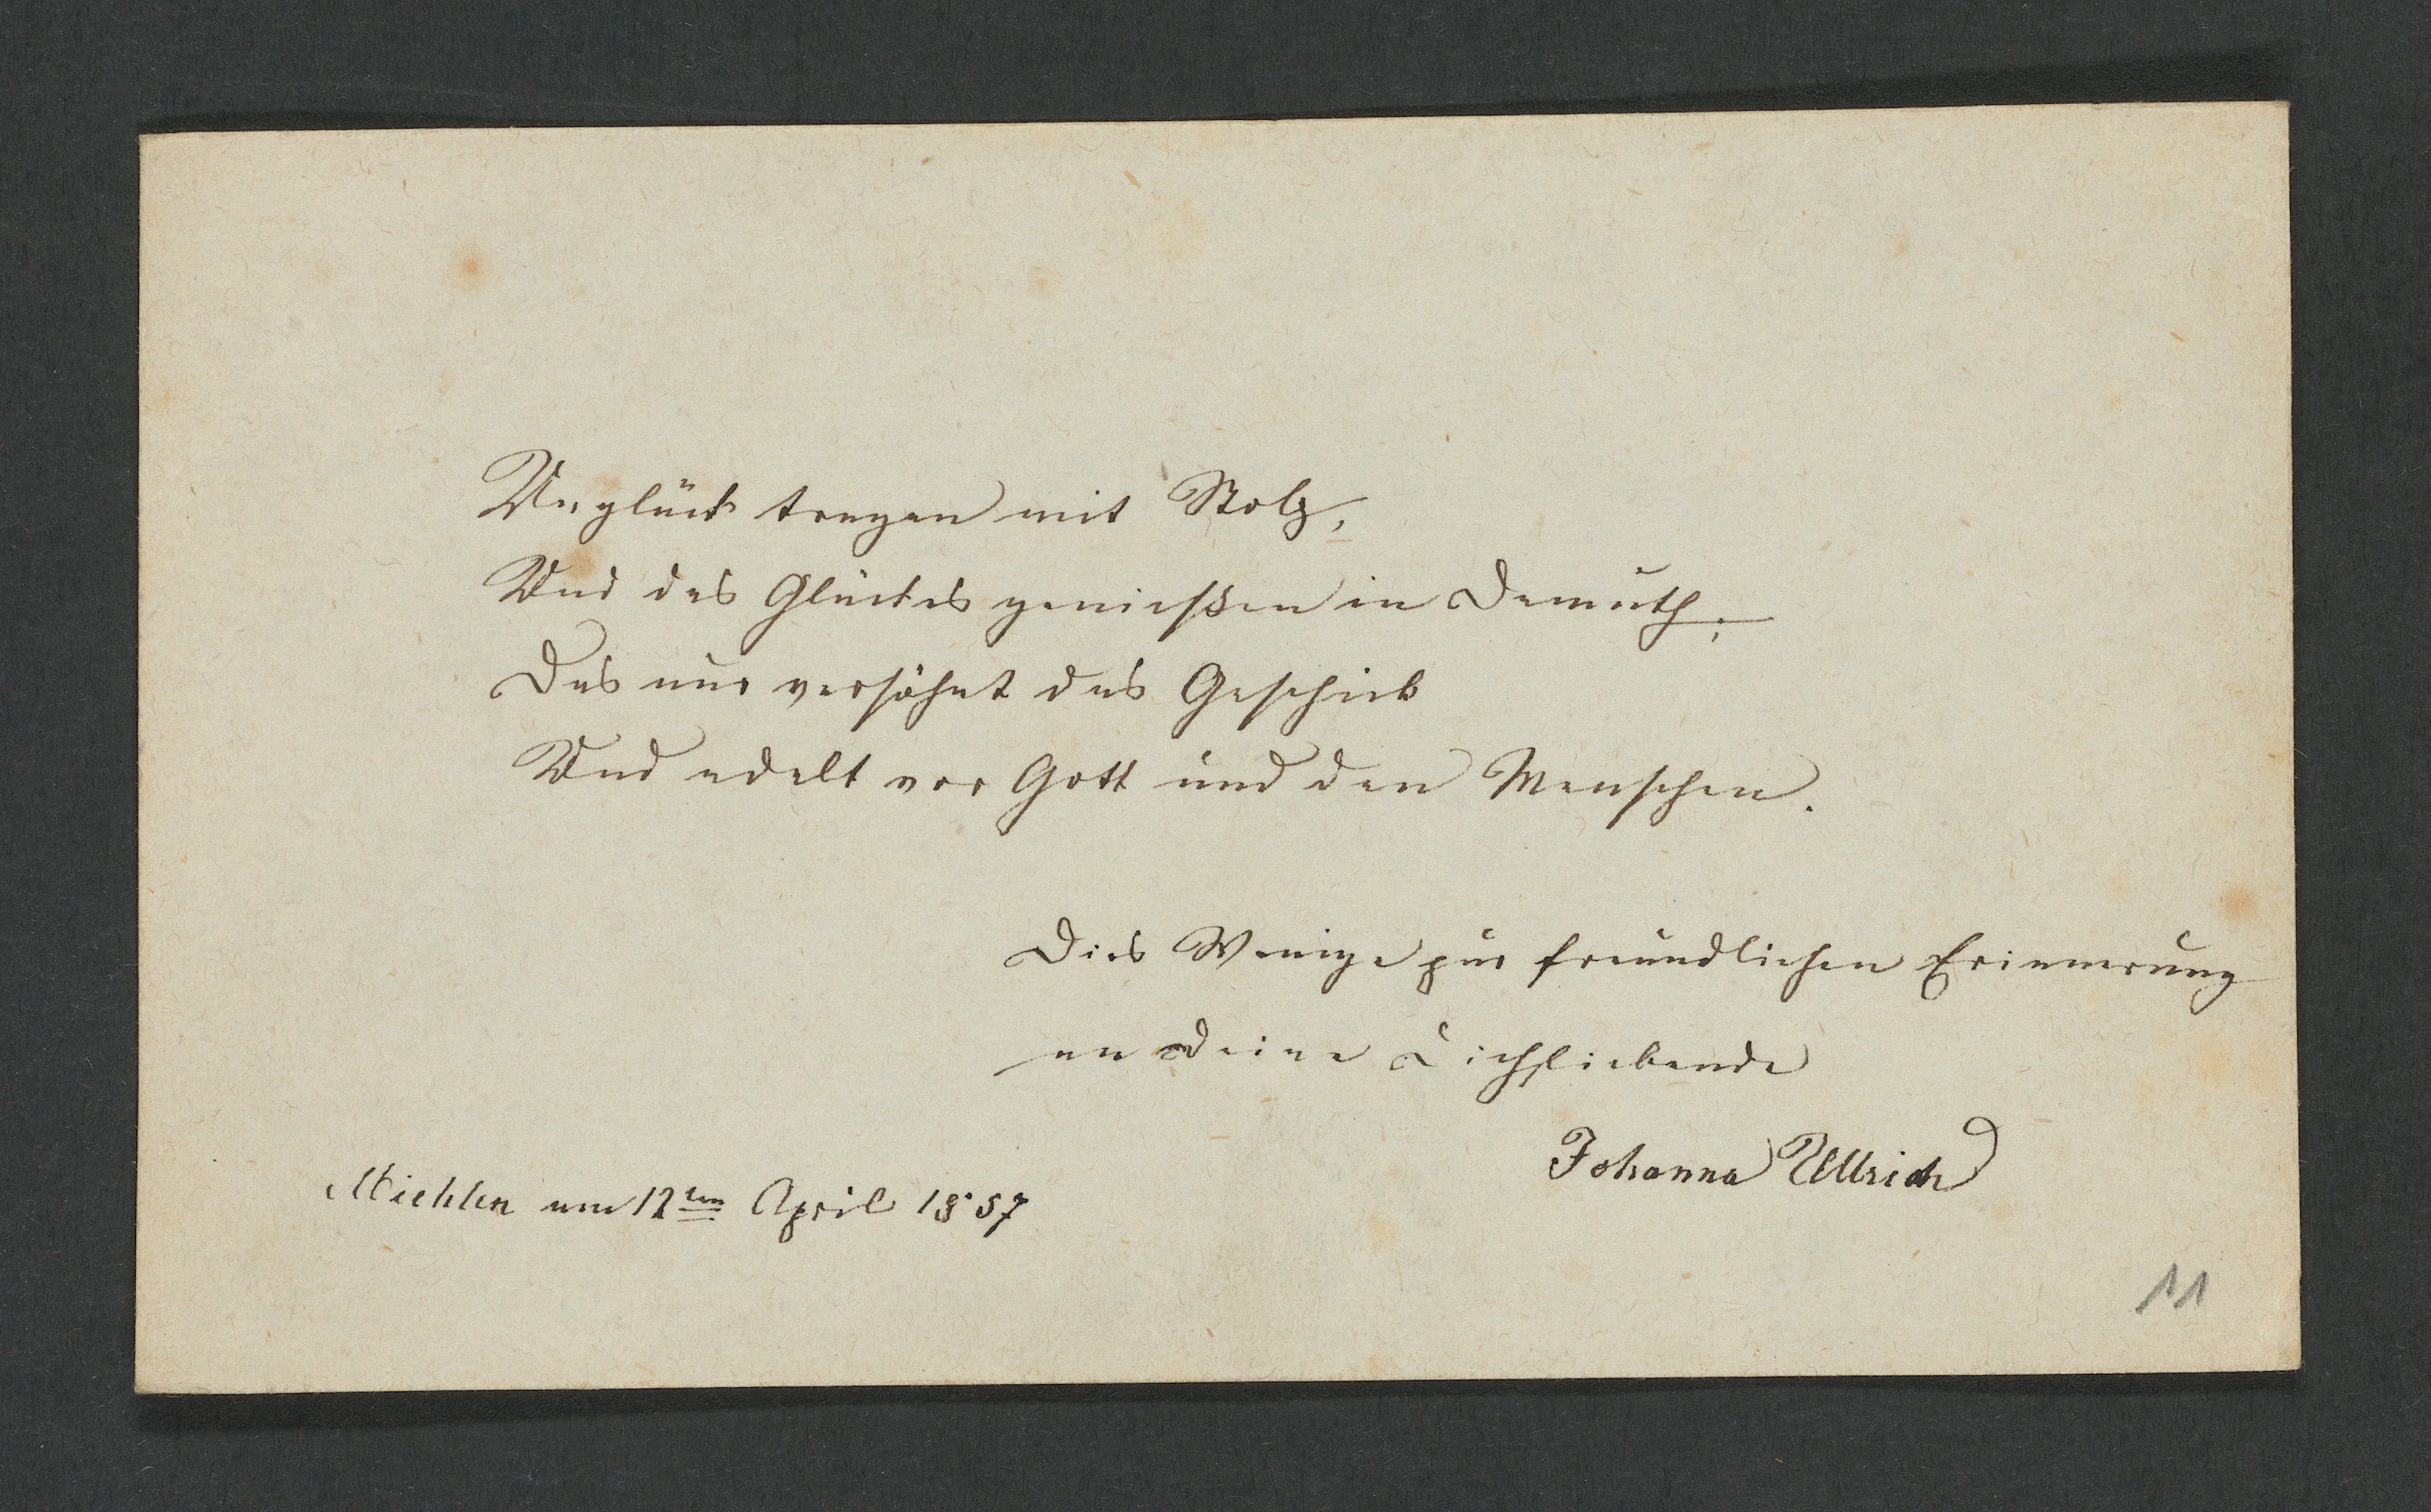 Unglück tragen mit Stolz,
Und des Glückes genießen in Demuth;
Das nur versöhnt das Geschick
Und adelt vor Gott und den Menschen.
Dies Wenige zur freundlichen Erinnerung
an Deine Dichliebende
Johanna Ullrich
Miehlen am 12ten April 1857
11